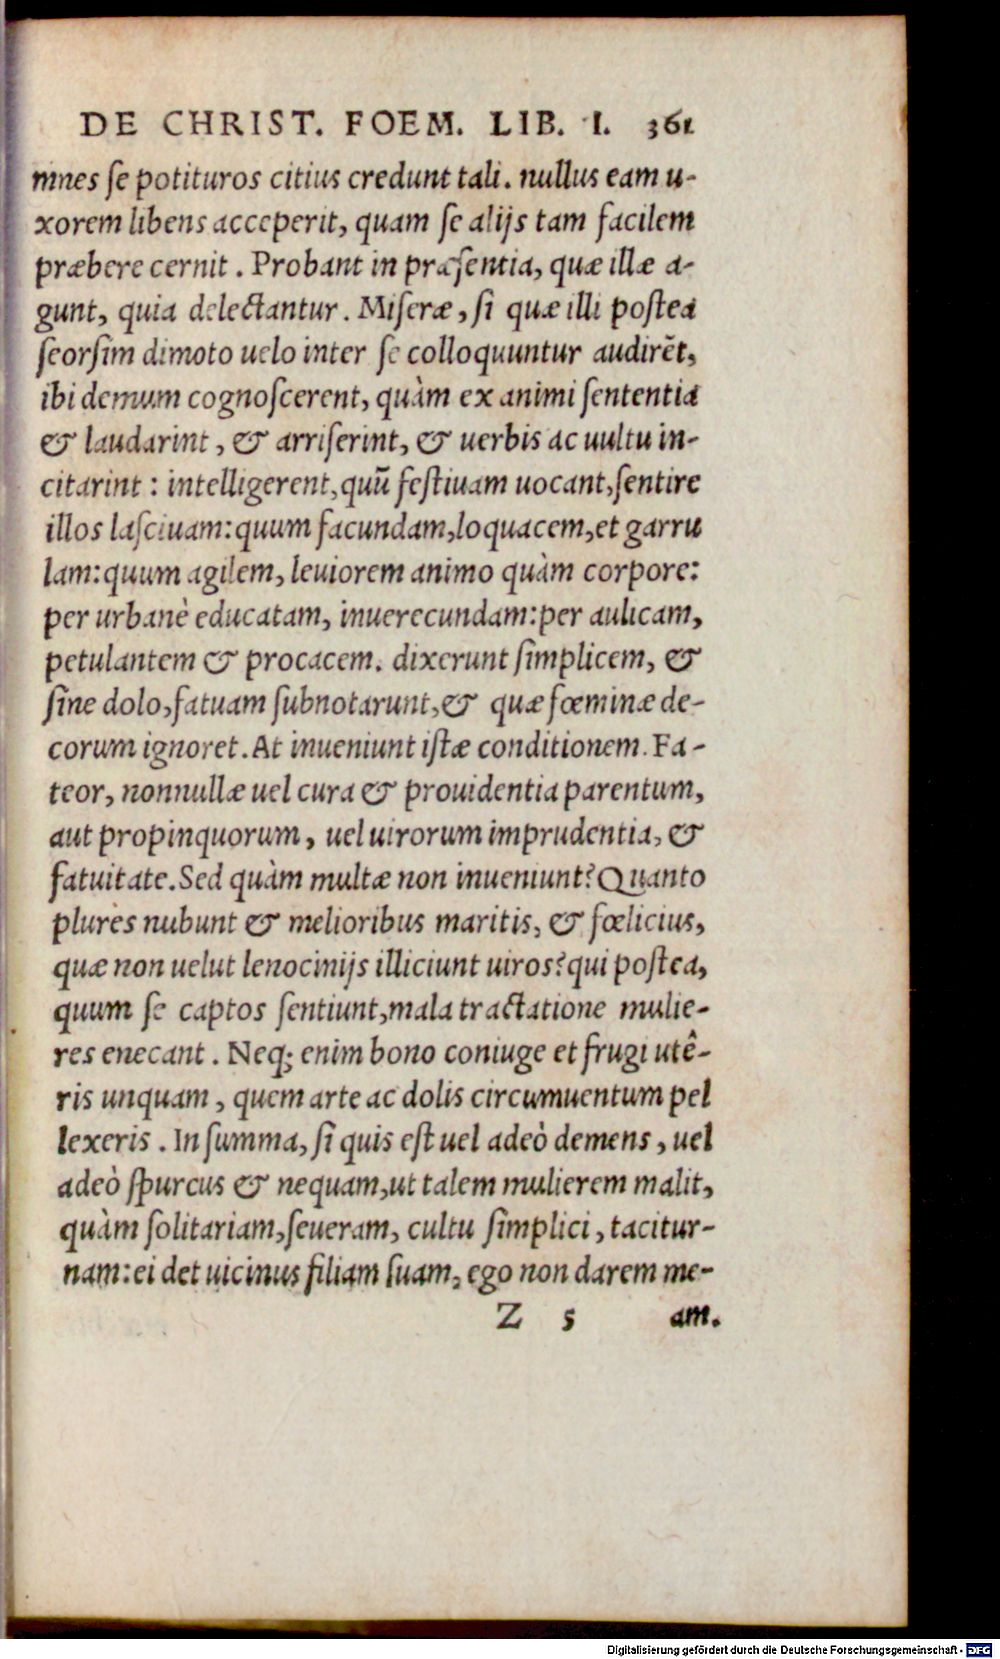 DE CHRIST. FOEM. LIB. I. 361
mnes se potituros citius credunt tali. nullus eam u-
xorem libens acceperit, quam se alijs tam facilem
præbere cernit. Probant in præsentia, quæ illæ a-
gunt, quia delectantur. Miseræ, si quæ illi postea
seorsim dimoto uelo inter se colloquuntur audirēt,
ibi demum cognoscerent, quàm ex animi sententia
& laudarint, & arriserint, & uerbis ac uultu in-
citarint: intelligerent, quū festiuam uocant, sentire
illos lasciuam: quum facundam, loquacem, et garru
lam: quum agilem, leuiorem animo quàm corpore:
per urbanè educatam, inuerecundam: per aulicam,
petulantem & procacem. dixerunt simplicem, &
sine dolo, fatuam subnotarunt, & quæ fœminæ de-
corum ignoret. At inueniunt istæ conditionem. Fa-
teor, nonnullæ uel cura & prouidentia parentum,
aut propinquorum, uel uirorum imprudentia, &
fatuitate. Sed quàm multæ non inueniunt? Quanto
plures nubunt & melioribus maritis, & fœlicius,
quæ non uelut lenocinijs illiciunt uiros? qui postea,
quum se captos sentiunt, mala tractatione mulie-
res enecant. Neq; enim bono coniuge et frugi utê-
ris unquam, quem arte ac dolis circumuentum pel
lexeris. In summa, si quis est uel adeò demens, uel
adeò spurcus & nequam, ut talem mulierem malit,
quàm solitariam, seueram, cultu simplici, tacitur-
nam: ei det uicinus filiam suam, ego non darem me-
Z 5 am.
Digitalisierung gefördert durch die Deutsche Forschungsgemeinschaft - DFG